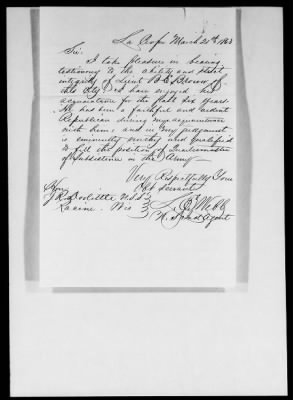 La Crosse March 20th 1863
Sir.
I take pleasure in bearing
testimony to the ability and strict
integrity of Lieut Brown of
this City. I have enjoyed his
acquaintance for the past six years.
He has been a faithful and ardent
Republican during my acquaintance
with him, and in my judgement
is eminently worthy and qualified
to fill the position of Quartermaster
of Subsistence in the Army—
Very Respectfully Your
Obt Servant
Hon
J R Doolittle U.S.S
Racine. Wis
Webb
Agent